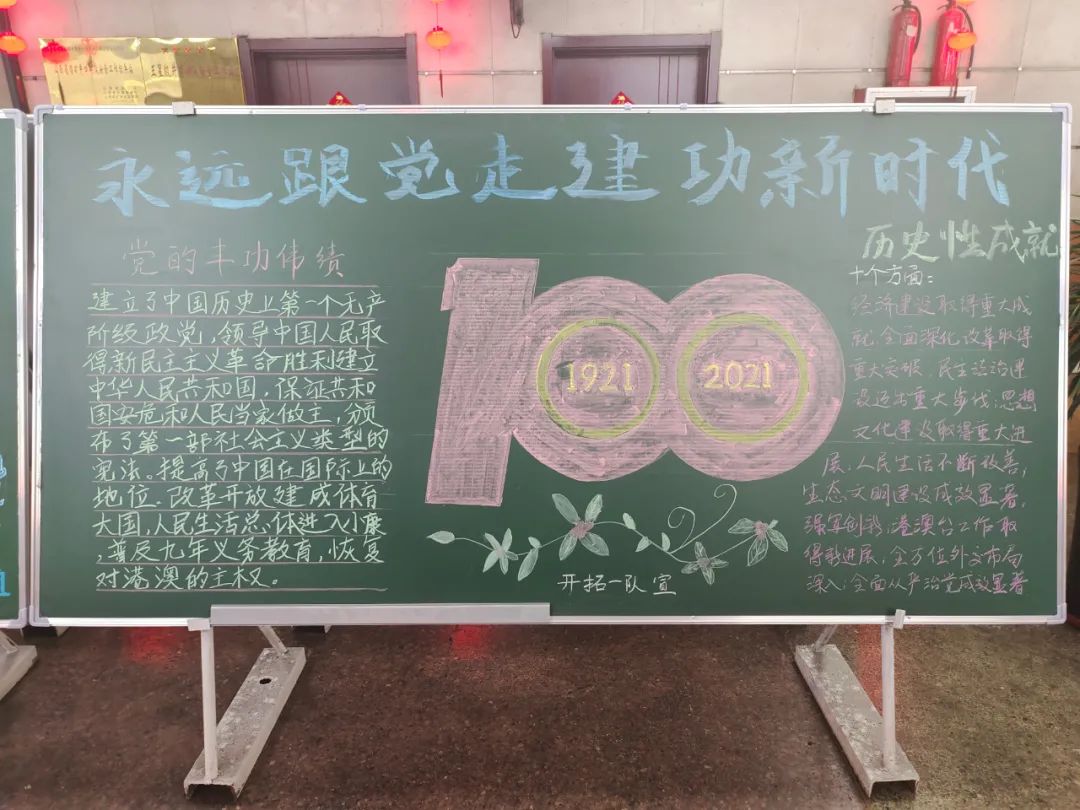 永远跟党走建功新时代
党的丰功伟绩
建立了中国历史上第一个无产
阶级政党,领导中国人民取
得新民主主义革命胜利建立
中华人民共和国,保证共和
国安危和人民当家做主,颁
布了第一部社会主义类型的
宪法。提高了中国在国际上的
地位.改革开放建成体育
大国,人民生活总体进入小康
,普及九年义务教育,恢复
对港澳的主权。
1921
2021
开拓一队宣
历史性成就
十个方面:
经济建设取得重大成
就.全面深化改革取得
重大突破.民主法治建
设迈出重大步伐;思想
文化建设取得重大进
展;人民生活不断改善;
生态文明建设成效显著,
强军创新;港澳台工作取
得新进展;全方位外交布局
深入;全面从严治党成效显著